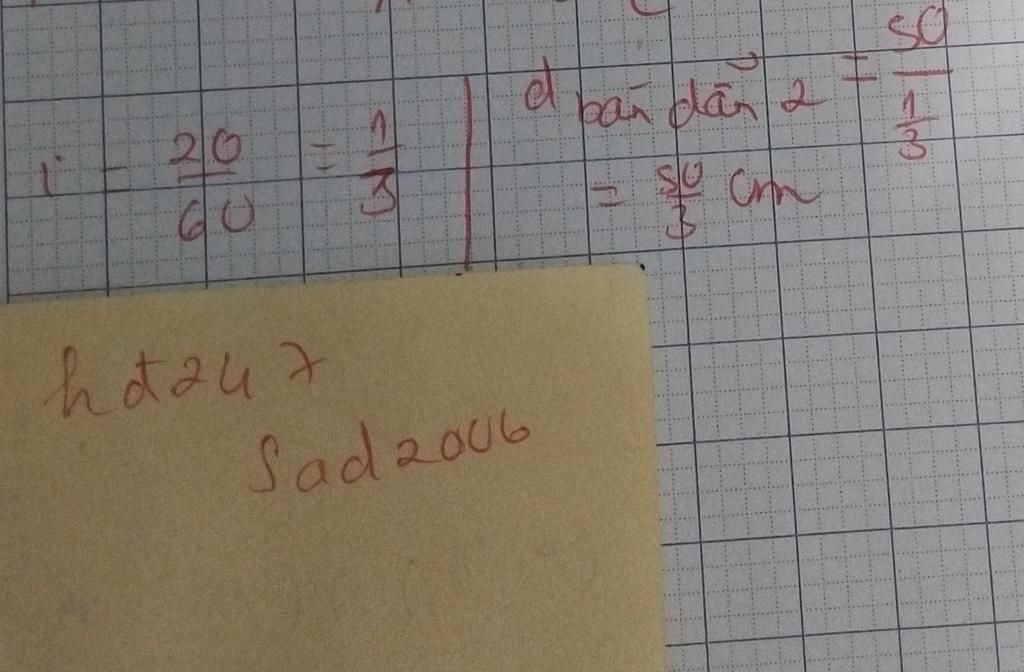 i = 20/60 = 1/3
d bán dẫn 2 = 50/(1/3)
= 50/3 cm
hd247
Sad2006